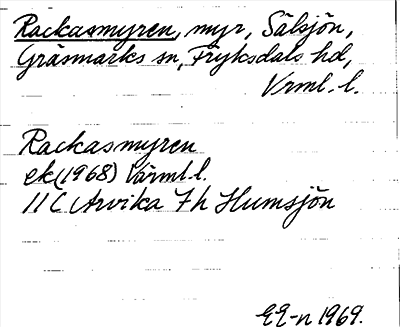 Rackasmyren, myr, Sälsjön,
Gräsmarks sn, Fryksdals hd,
Vrml. l.
Rackasmyren
ek(1968) Värml.l.
11C Arvika 7h Humsjön
EE-n 1969.